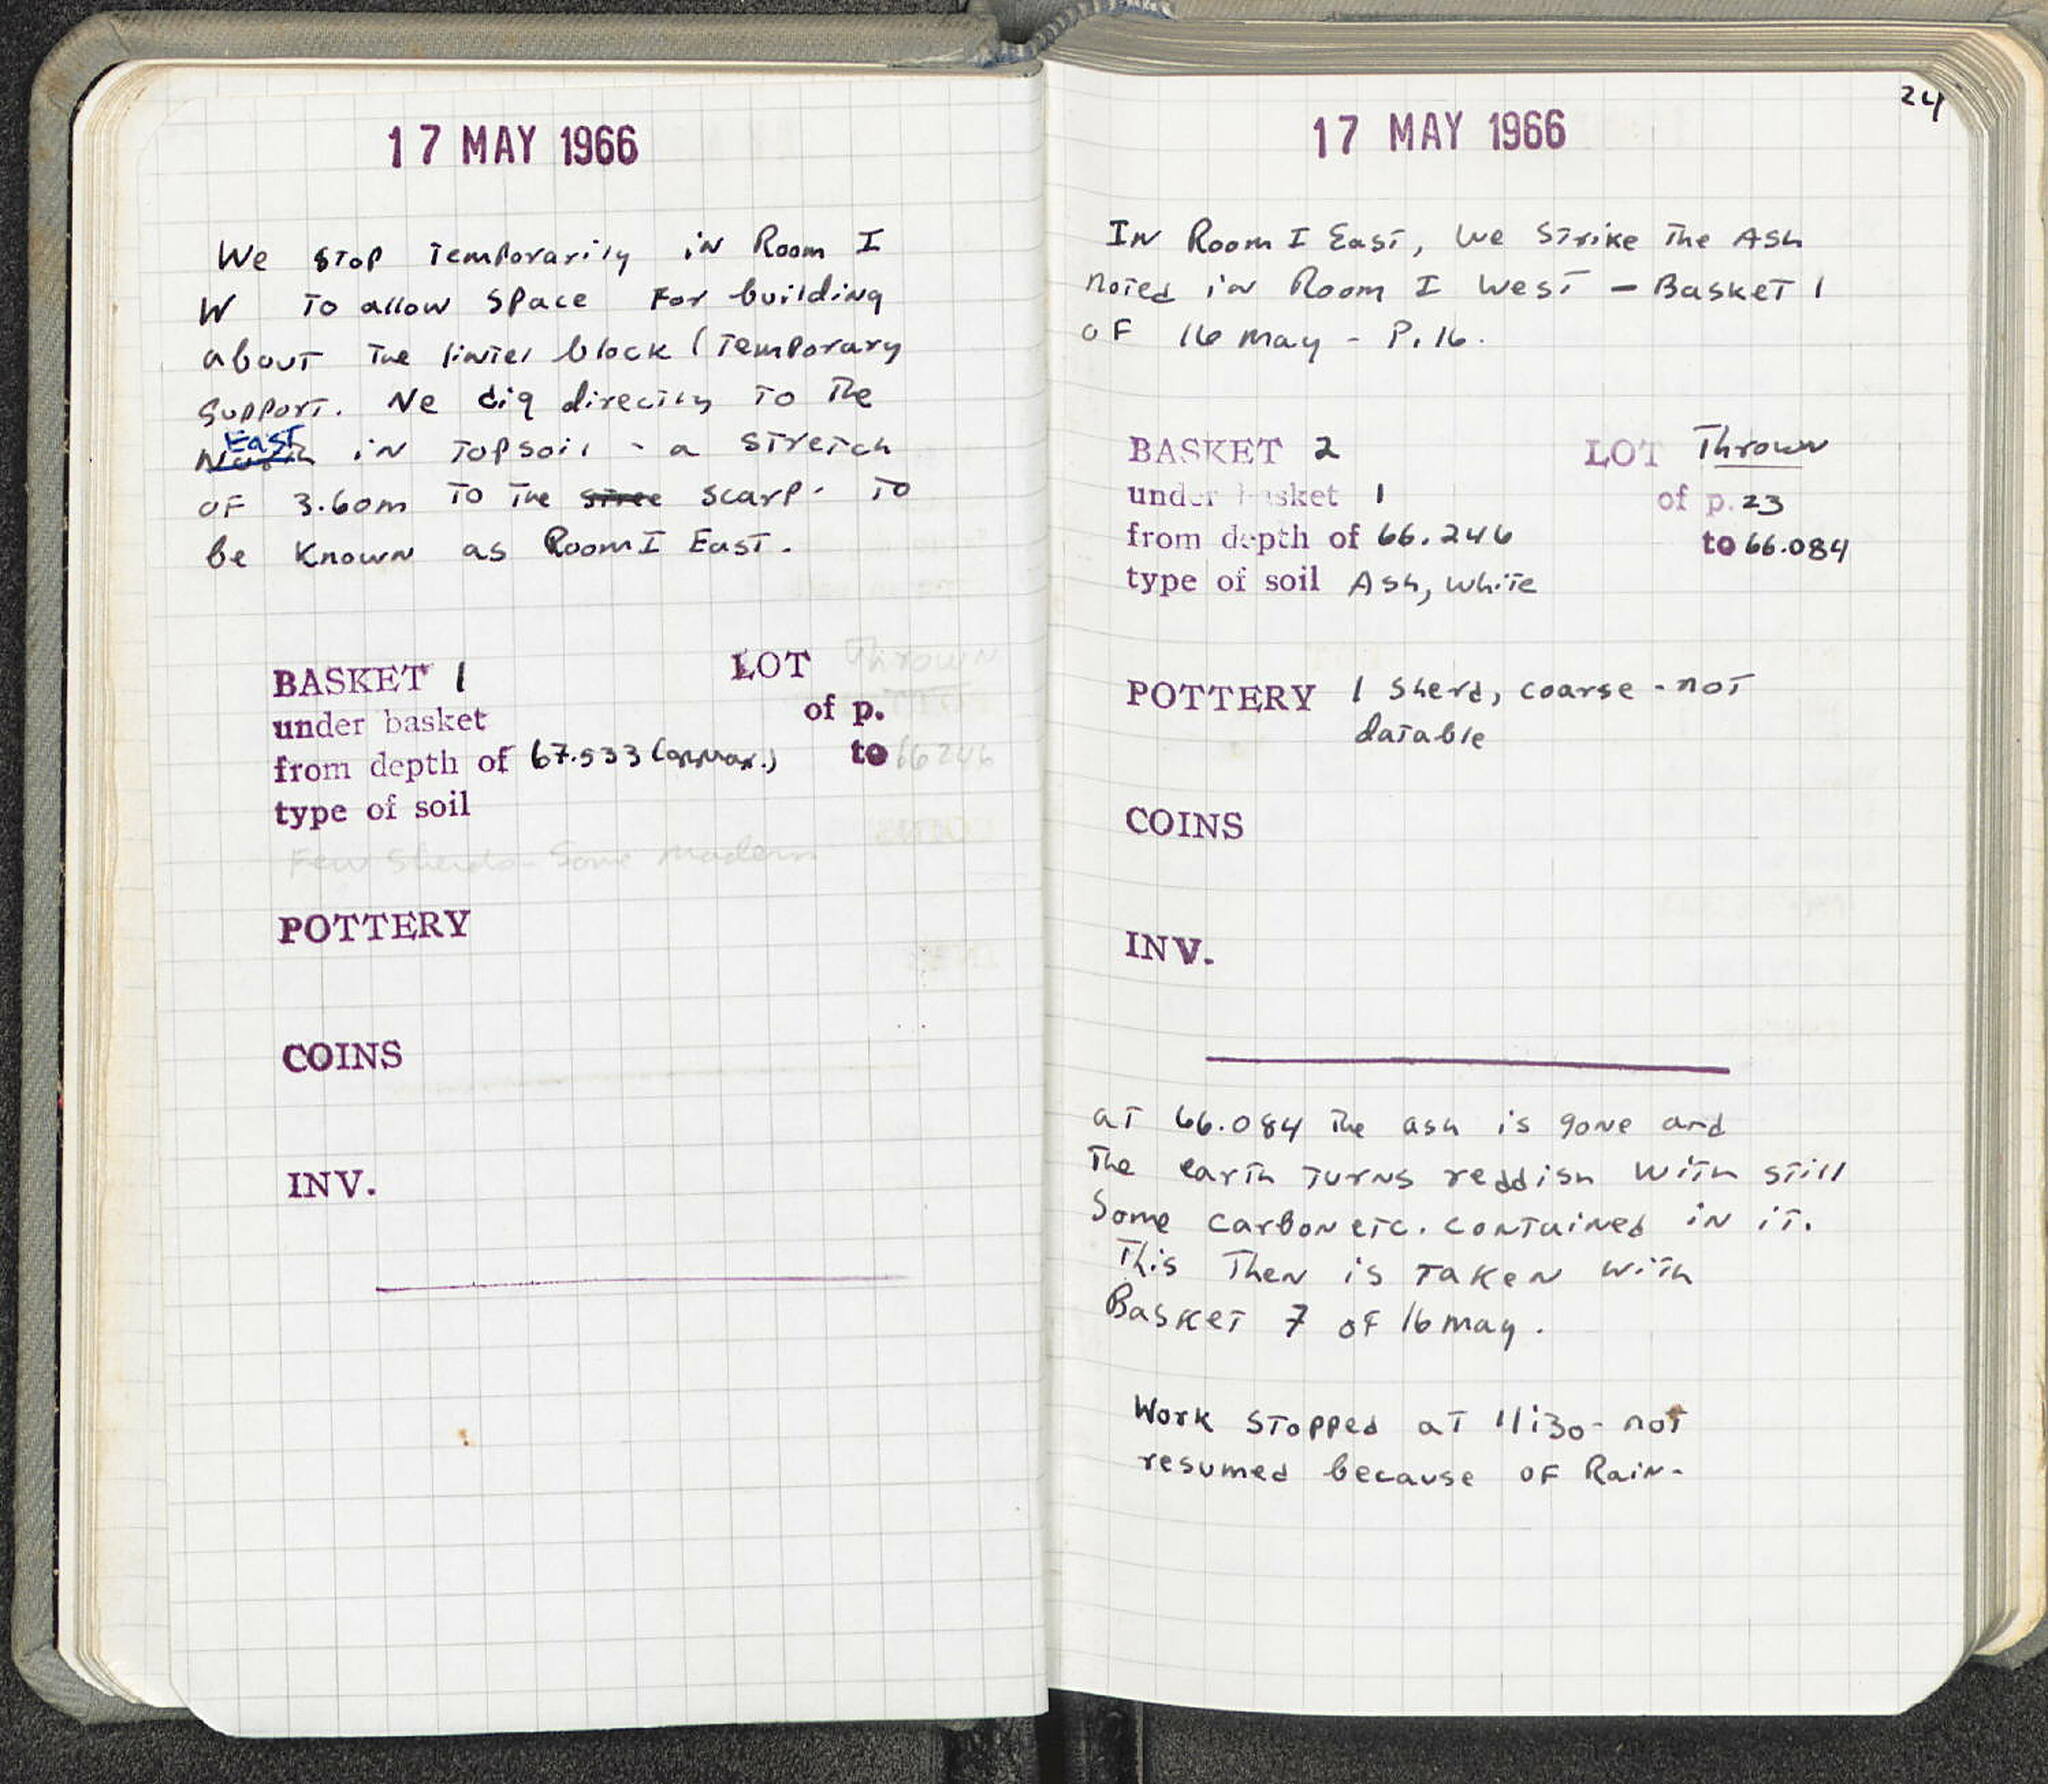 17 MAY 1966
We stop temporarily in Room I
W to allow space for building
about the lintel block (temporary
support. We dig directly to the
North East in topsoil - a stretch
of 3.60m to the stree scarp. To
be known as Room I East.
BASKET 1 LOT Thrown
under basket of p.
from depth of 67.533 (approx.) to 66.246
type of soil
Few sherds - Some modern
POTTERY
COINS
INV.
24
17 MAY 1966
In Room I East, we strike the Ash
noted in Room I West - Basket 1
of 16 May - P. 16.
BASKET 2 LOT Thrown
under basket 1 of p. 23
from depth of 66.246 to 66.084
type of soil Ash, white
POTTERY 1 sherd, coarse - not
datable
COINS
INV.
at 66.084 the ash is gone and
the earth turns reddish with still
some carbon etc. contained in it.
This then is taken with
Basket 7 of 16 may.
Work stopped at 11:30 - not
resumed because of Rain -